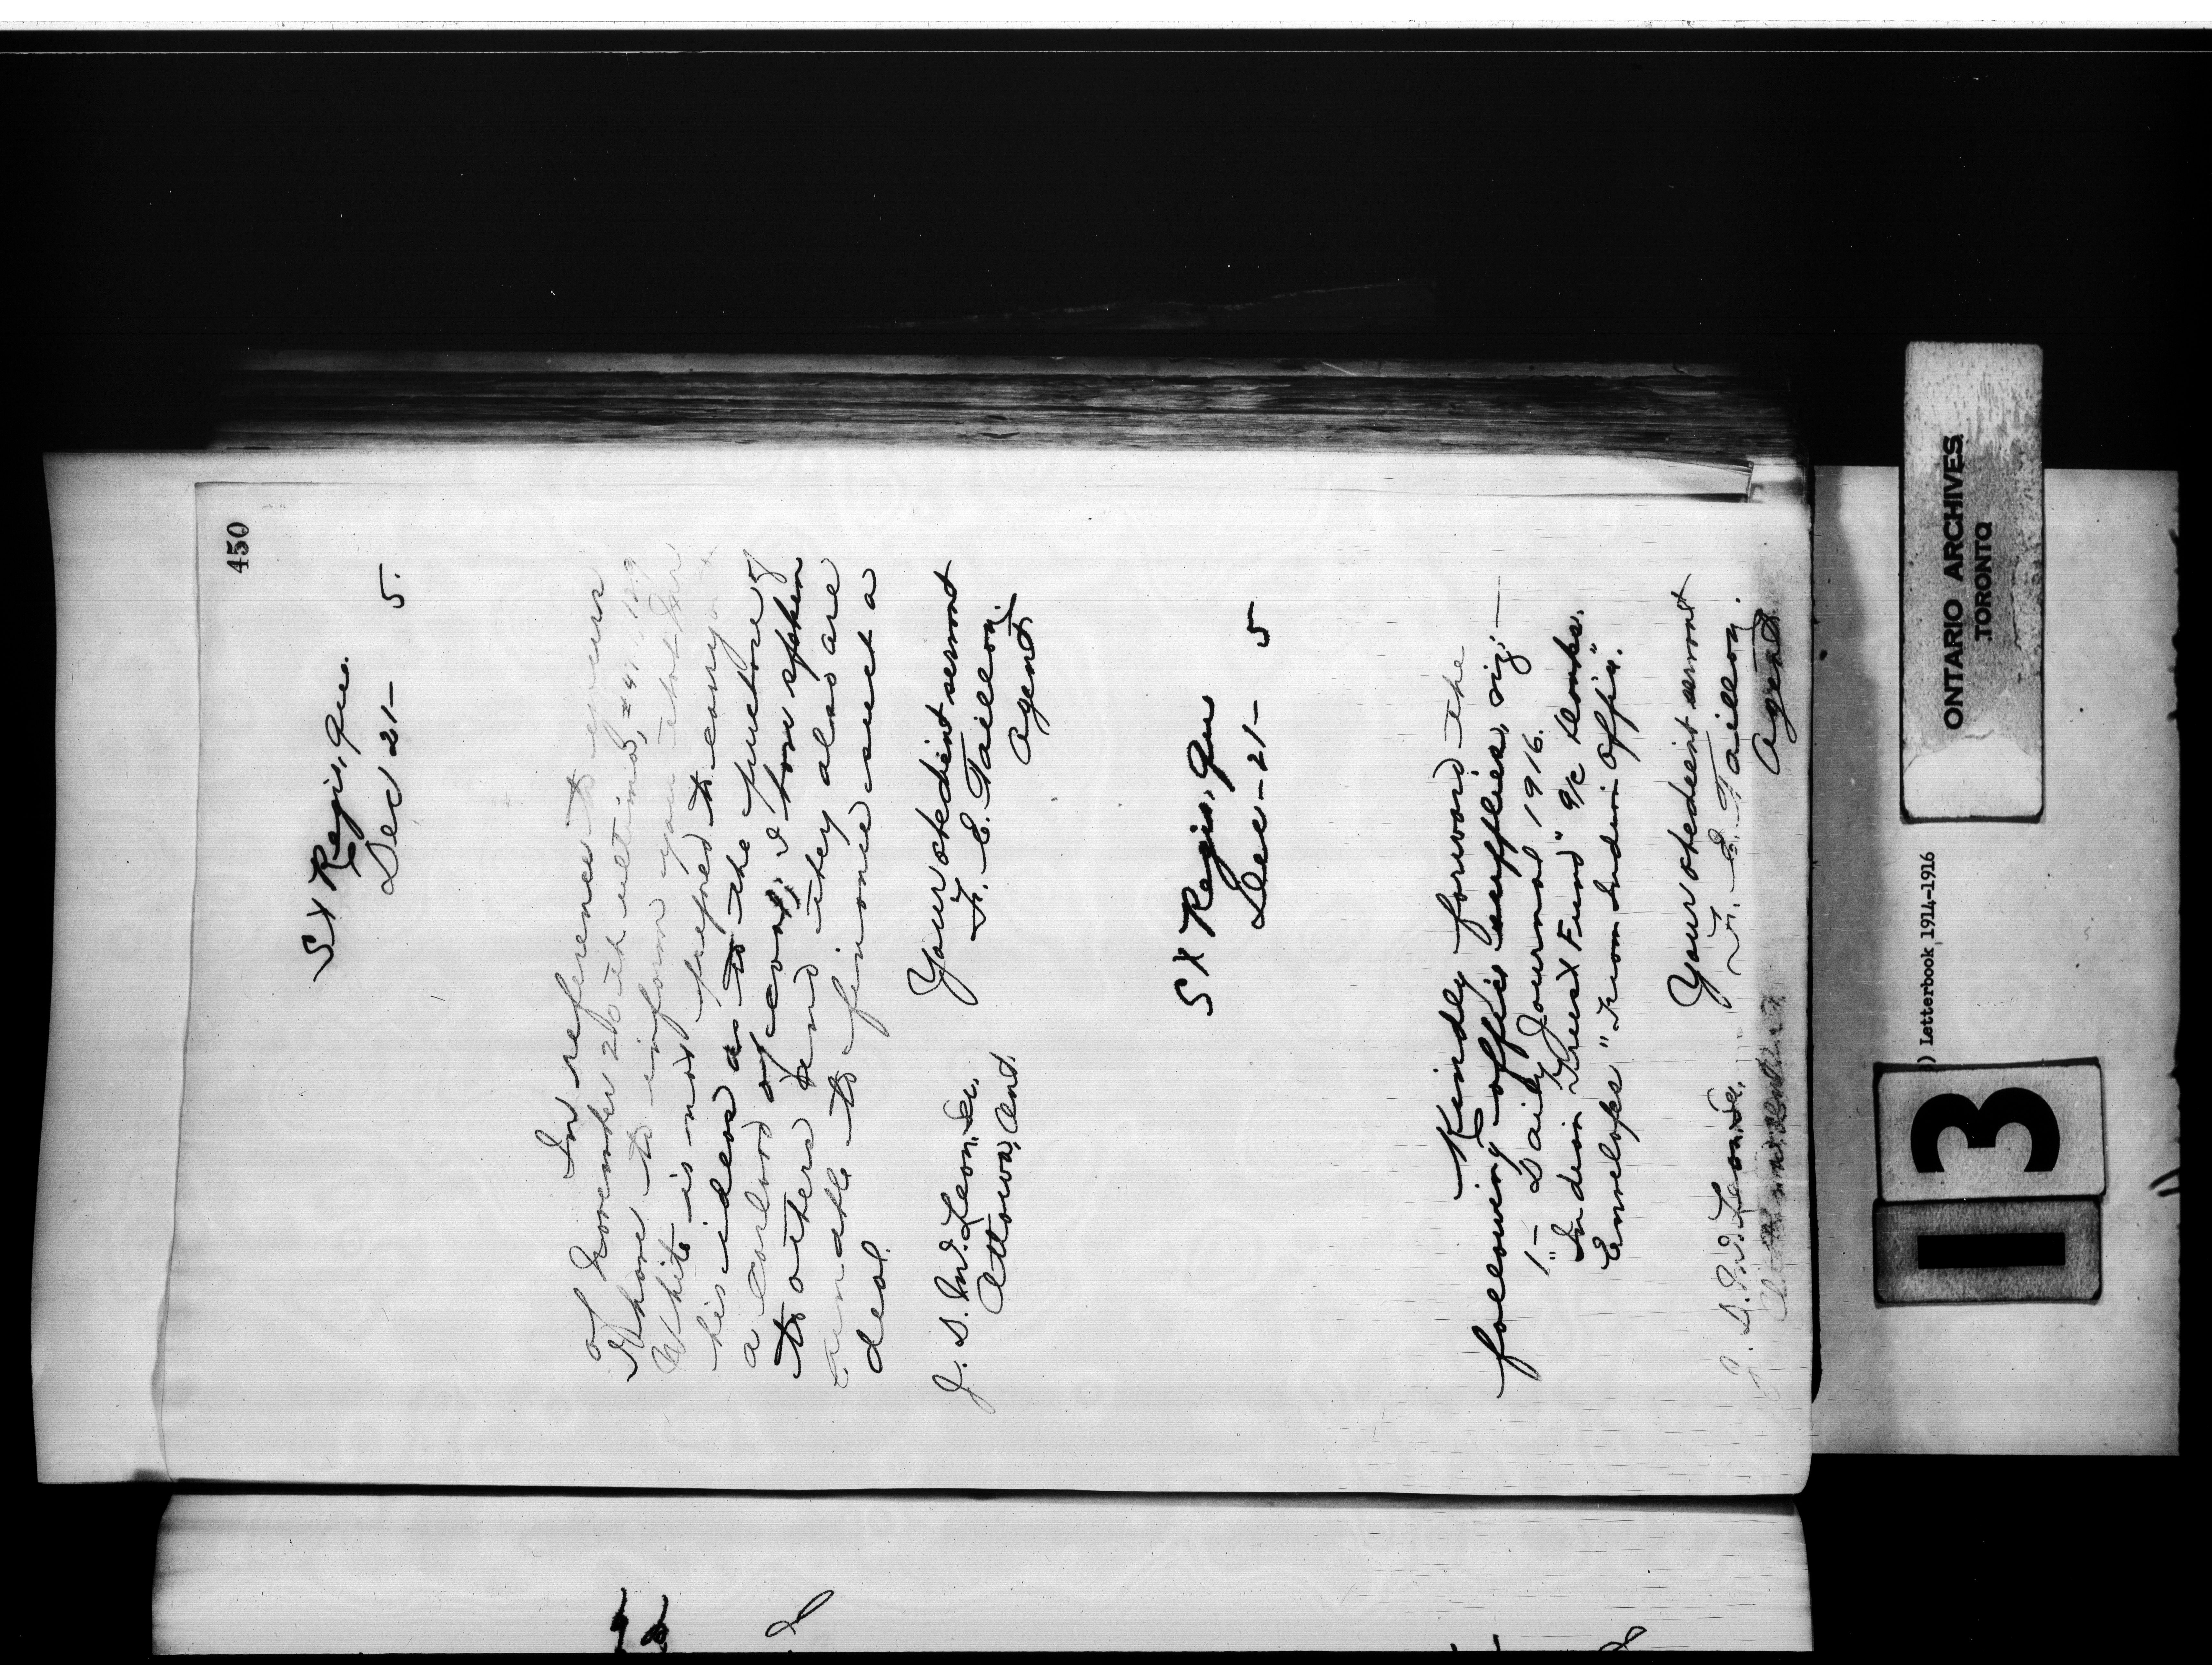 450
St Regis, Que.
Dec 21- 5.
In reference to yours
of November 26th ultimo,
I have to inform you that Mr
White is not prepared to carry on
his ideas as to the purchase of
a carload of coal; I have spoken
to others and they also are
unable to finance such a
deal.
Your obedient servant
F. E. Taillon,
Agent
J. D. McLean, Sr.
Ottawa, Ont.
St Regis, Que
Dec - 21 - 5
Kindly forward the
following office supplies, viz; —
1 - Daily Journal 1916.
"Indian Trust Fund" a/c blanks.
Envelopes "From Indian Office".
Your obedient servant
F. E. Taillon.
Agent
J. D. McLean, Sr.
ONTARIO ARCHIVES
TORONTO
) Letterbook 1914-1916
13